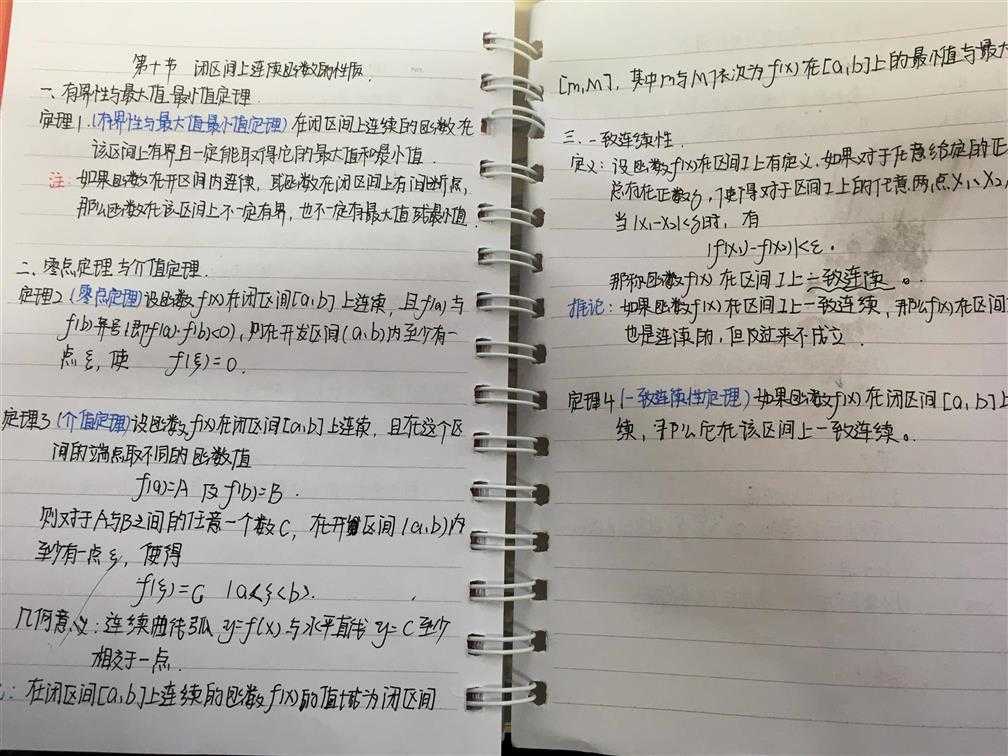 第十节 闭区间上连续函数的性质.
一、有界性与最大值最小值定理.
定理1.(有界性与最大值最小值定理)在闭区间上连续的函数在
该区间上有界且一定能取得它的最大值和最小值.
注:如果函数在开区间内连续,或函数在闭区间上有间断点,
那么函数在该区间上不一定有界,也不一定有最大值或最小值.
二、零点定理与介值定理.
定理2(零点定理)设函数f(x)在闭区间[a,b]上连续,且f(a)与
f(b)异号(即f(a)·f(b)<0),则在开发区间(a,b)内至少有一
点ξ,使 f(ξ)=0.
定理3(介值定理)设函数f(x)在闭区间[a,b]上连续,且在这个区
间的端点取不同的函数值
f(a)=A 及f(b)=B.
则对于A与B之间的任意一个数C,在开区间(a,b)内
至少有一点ξ,使得
f(ξ)=C (a<ξ<b).
几何意义:连续曲线弧y=f(x)与水平直线y=C至少
相交于一点.
:在闭区间[a,b]上连续的函数f(x)的值域为闭区间
[m,M],其中m与M依次为f(x)在[a,b]上的最小值与最大
三、一致连续性.
定义:设函数f(x)在区间I上有定义.如果对于任意给定的正
总存在正数δ,使得对于区间I上的任意两点x₁、x₂,
当|x₁-x₂|<δ时,有
|f(x₁)-f(x₂)|<ε.
那称函数f(x)在区间I上一致连续。
推论:如果函数f(x)在区间I上一致连续,那么f(x)在区间
也是连续的,但反过来不成立.
定理4(一致连续性定理)如果函数f(x)在闭区间[a,b]上
续,那么它在该区间上一致连续。